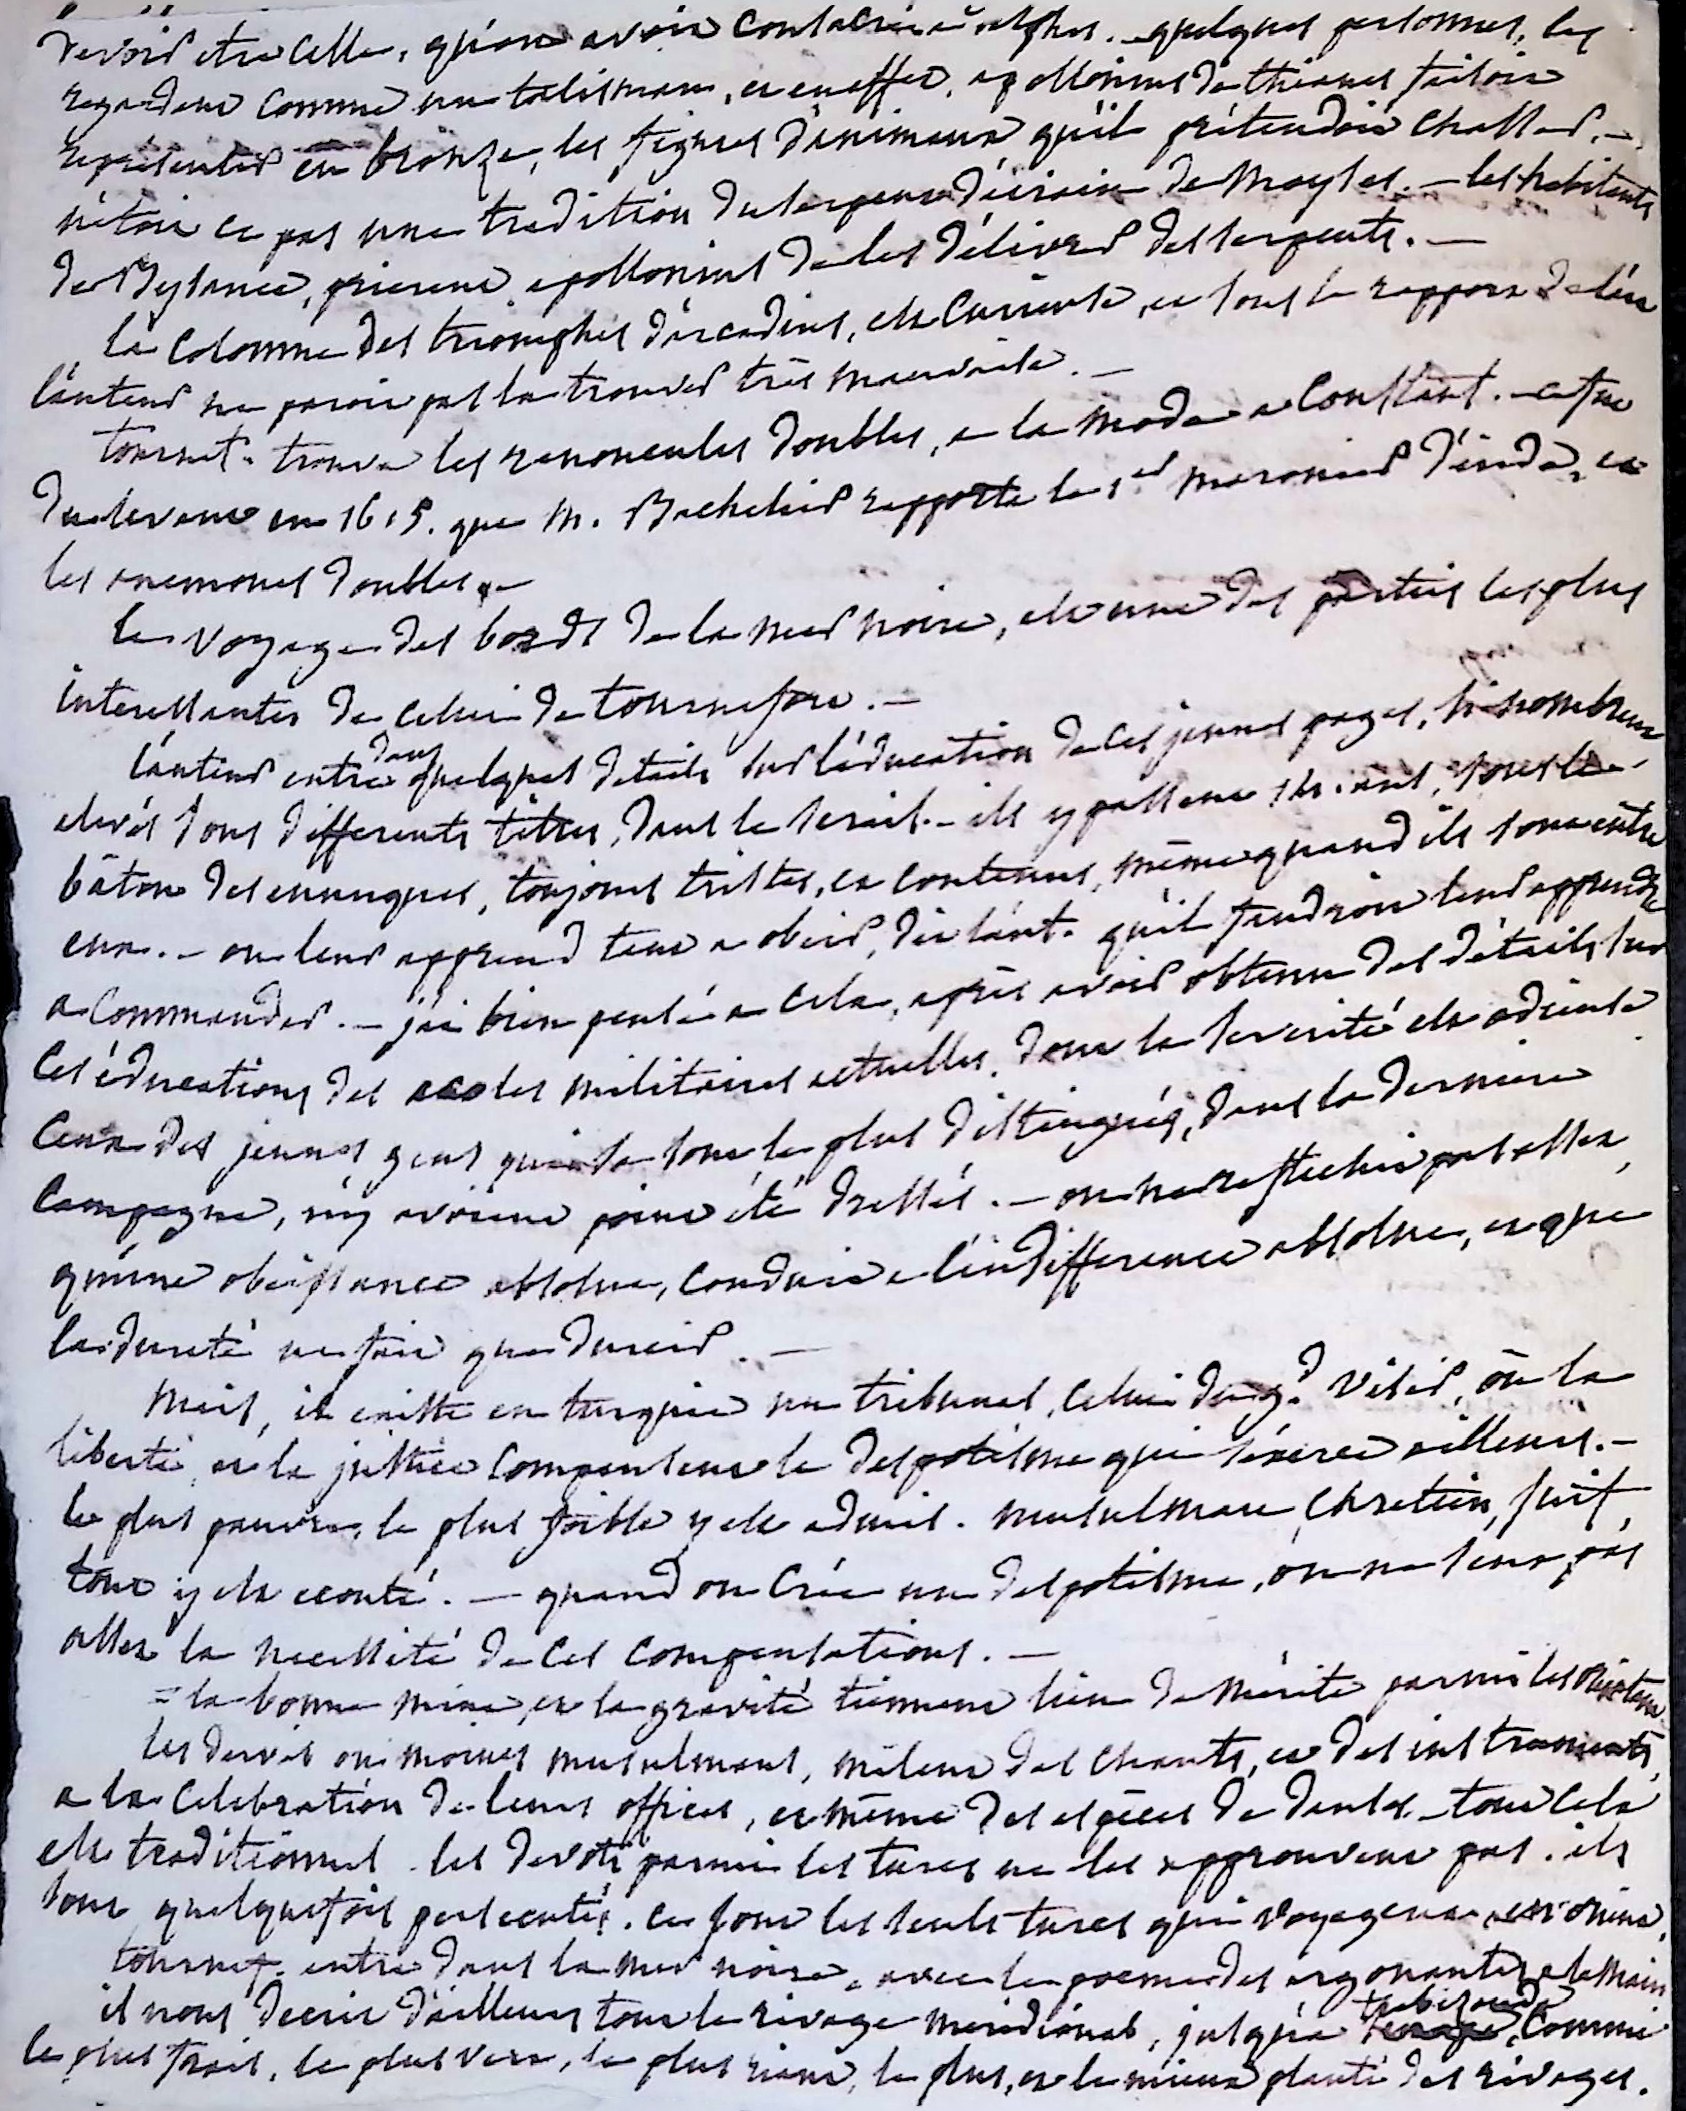 devoir etre celle, qu'on avoit consacrée a delphes. - quelques personnes, les
regardent comme un talisman, et en effet, apollonius de thianes faisoit
représenter en bronze, les figures d'animaux qu'il prétendoit chasser. -
n'étoit ce pas une tradition du serpent d'airain de Moyse. - les habitants
de Bysance, prierent apollonius de les délivrer des serpents. -
la colonne des triomphes d'arcadius, est curieuse, et sous le rapport de l'art
l'auteur ne paroit pas la trouver très mauvaise. -
tournef. trouve les renoncules doubles, a la mode a Constant. - ce fut
du levant en 1615. que M. Bachelier rapporta le 1er maronier d'inde, et
les anemones doubles. -
le voyage des bords de la mer noire, est une des parties les plus
interessantes de celui de tournefort. -
l'auteur entre dans quelques details sur l'éducation de ces jeunes pages, si nombreux
elevés sous differents titres, dans le serail. - ils y passent 14. ans, sous le
bâton des eunuques, toujours tristes, et contenus, même quand ils sont entre
eux. - on leur apprend tant a obeir, dit l'aut. qu'il faudroit leur apprendre
a commander. - j'ai bien pensé a cela, après avoir obtenu des détails sur
ces éducations des ecoles militaires actuelles, dont la severité est adoucie
ceux des jeunes gens qui se sont le plus distingués, dans la derniere
campagne, n'y avoient point été dressés. - on ne reflechit pas assez,
qu'une obeissance absolue, conduit a l'indifference absolue, et que
la dureté ne fait que durcir. -
Mais, il existe en turquie un tribunal, celui du gd. Visir, où la
liberté, et la justice compensent le despotisme qui s'exerce ailleurs. -
le plus pauvre, le plus foible y est admis. musulman, chretien, juif,
tout y est ecouté. - quand on crée un despotisme, on ne sent pas
assez la necessité de ces compensations. -
= la bonne mine, et la gravité tiennent lieu de mérite parmi les orientaux.
les dervis ou moines musulmans, mêlent des chants, et des instruments,
a la celebration de leurs offices, et même des especes de danses. - tout cela
est traditionnel. les devots parmi les turcs ne les approuvent pas. ils
sont quelquefois persecutés. ce sont les seuls turcs qui voyagent en orient.
tournef. entre dans la mer noire, avec le poeme des argonautes a la main
il nous decrit d'ailleurs tout le rivage meridional, jusqu'a trebisonde, comme
le plus frais, le plus vert, le plus riant, le plus, et le mieux planté des rivages.